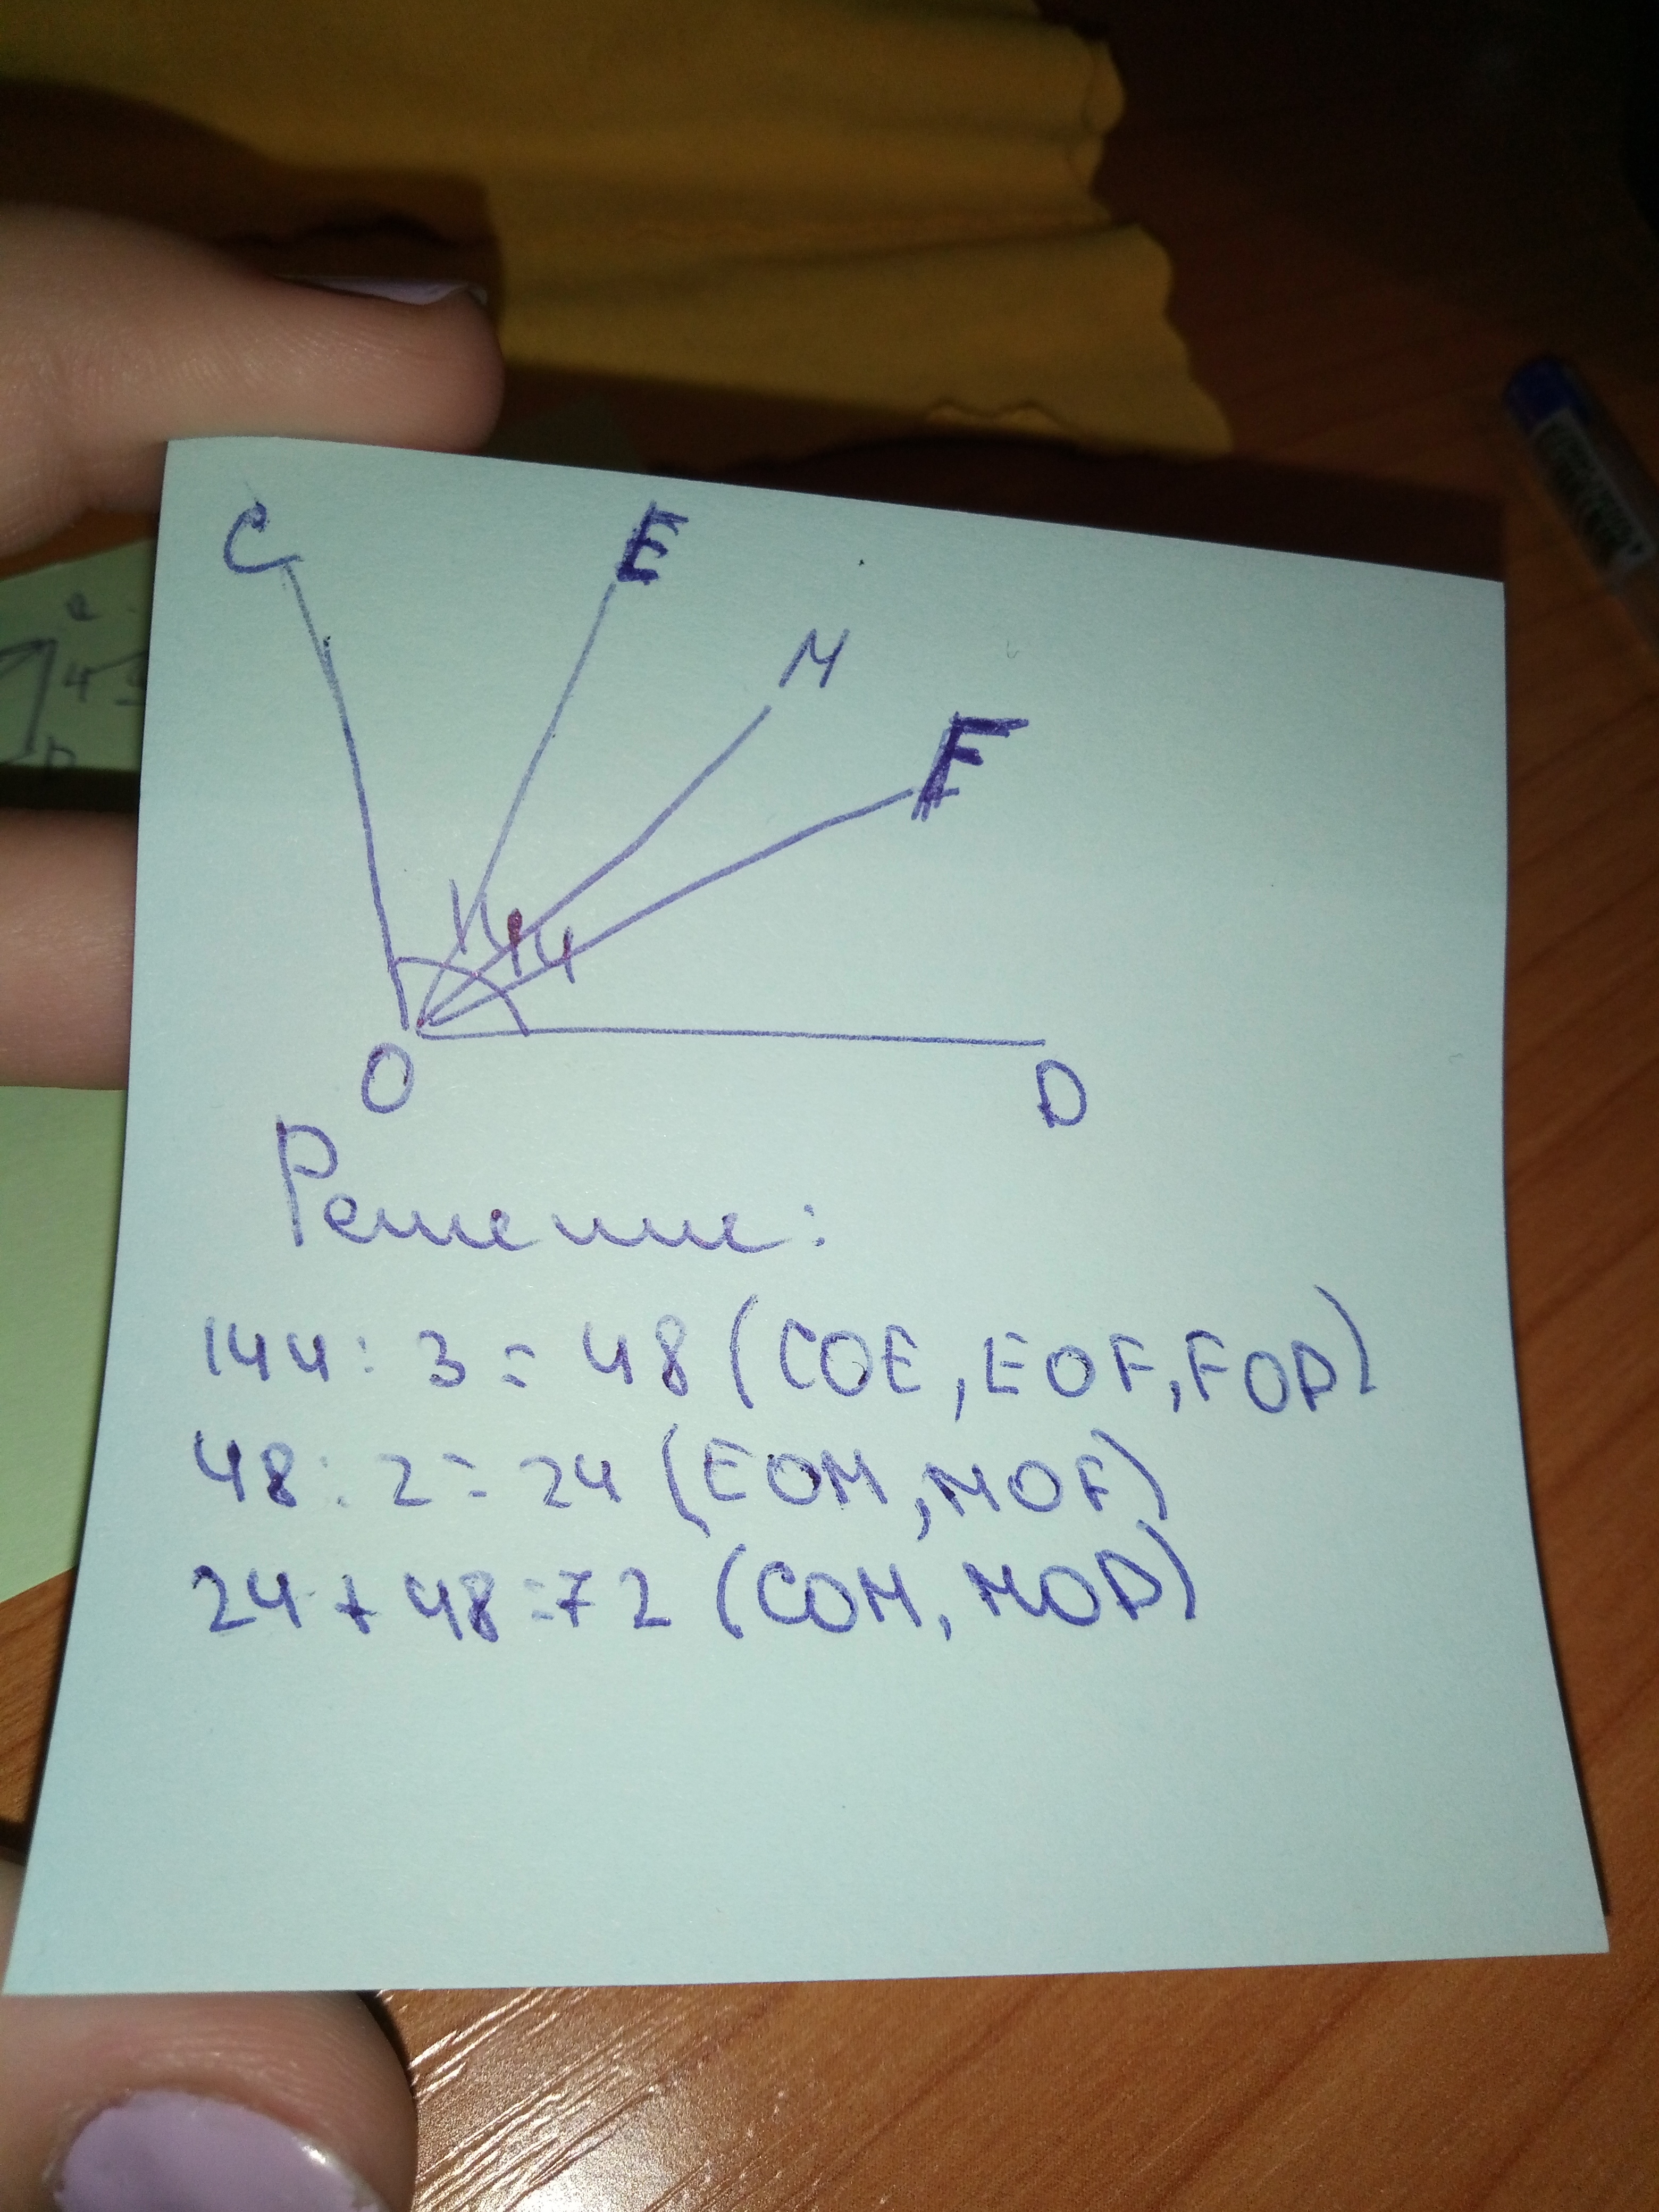 C E
M
F
144
O D
Решение:
144 : 3 = 48 (COE, EOF, FOD)
48 : 2 = 24 (EOM, MOF)
24 + 48 = 72 (COM, MOD)